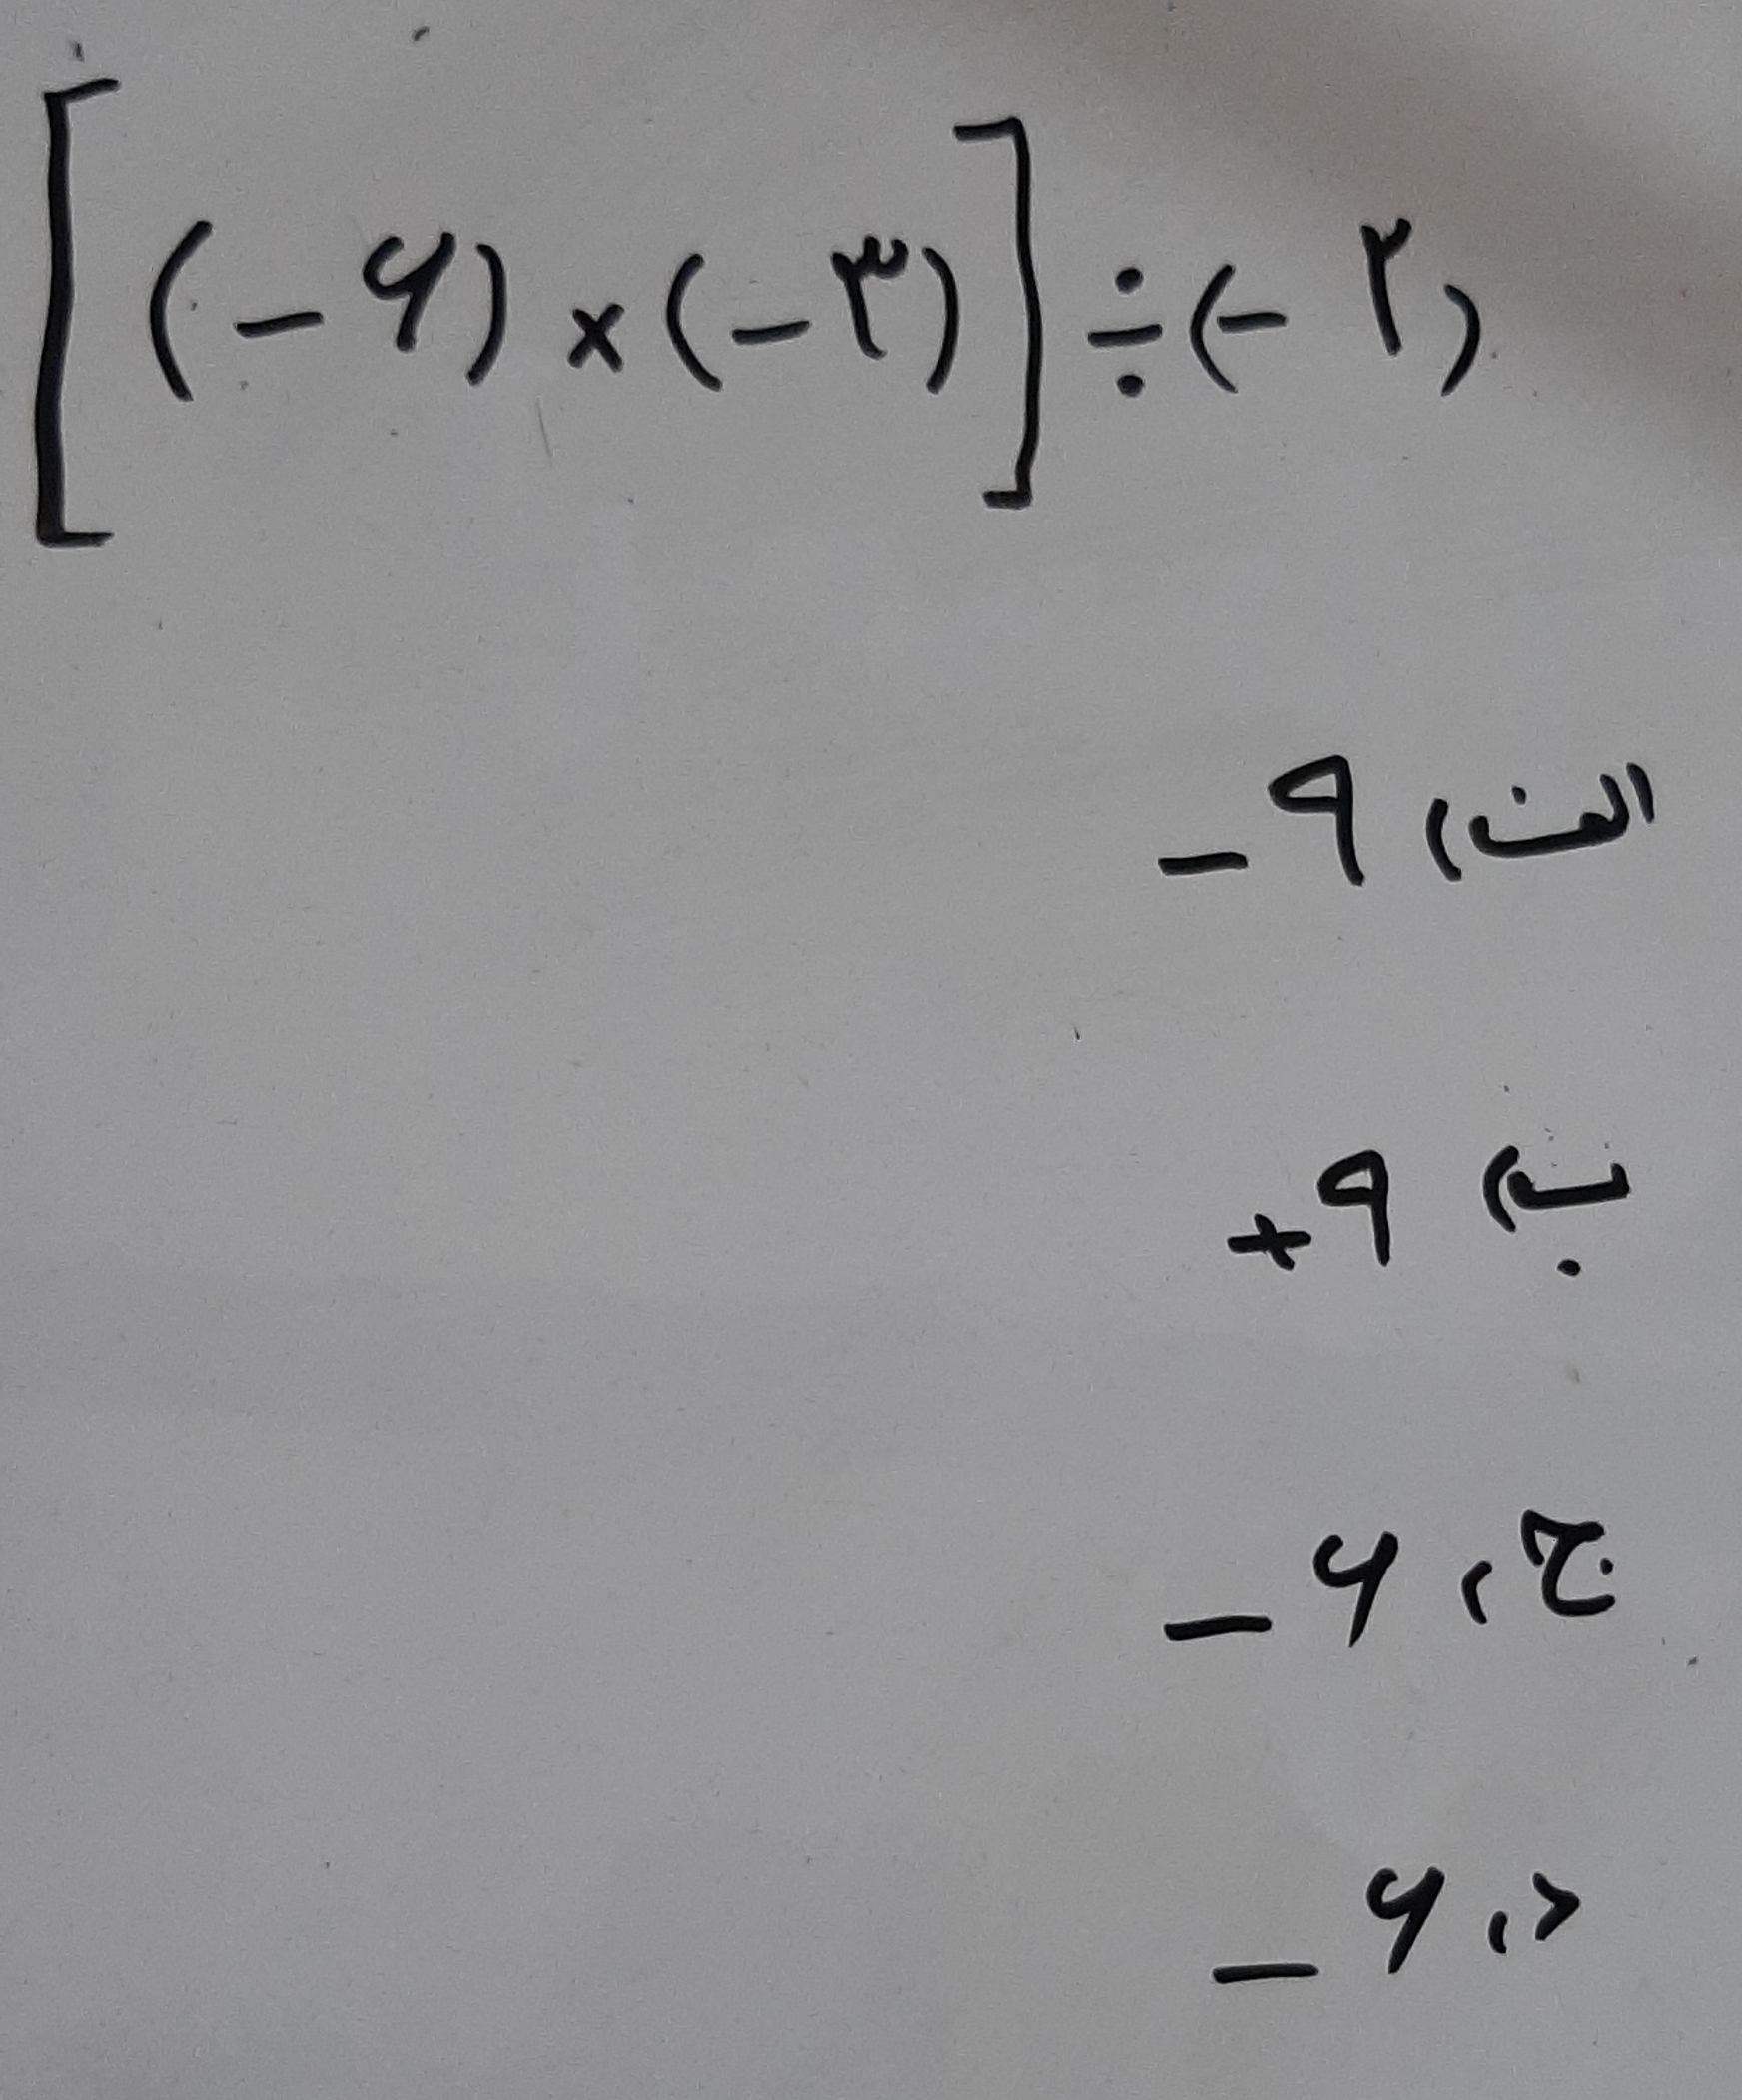 [(-۶)×(-۳)]÷(-۲)
الف) -۹
ب) +۹
ج) -۶
د) -۶